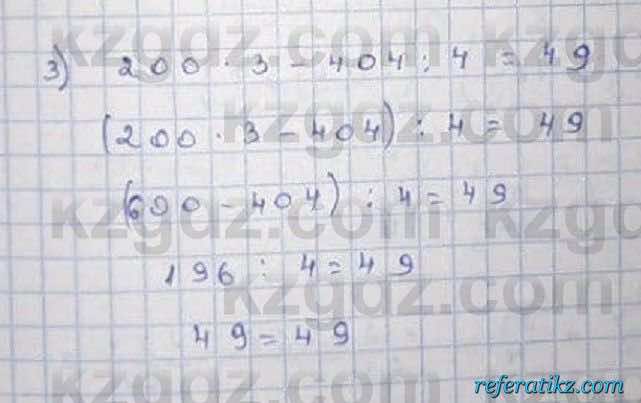 3) 200 · 3 - 404 : 4 = 49
(200 · 3 - 404) : 4 = 49
(600 - 404) : 4 = 49
196 : 4 = 49
49 = 49
kzgdz.com
kzgdz.com
kzgdz.com
kzgdz.com
kzgdz.com
referatikz.com